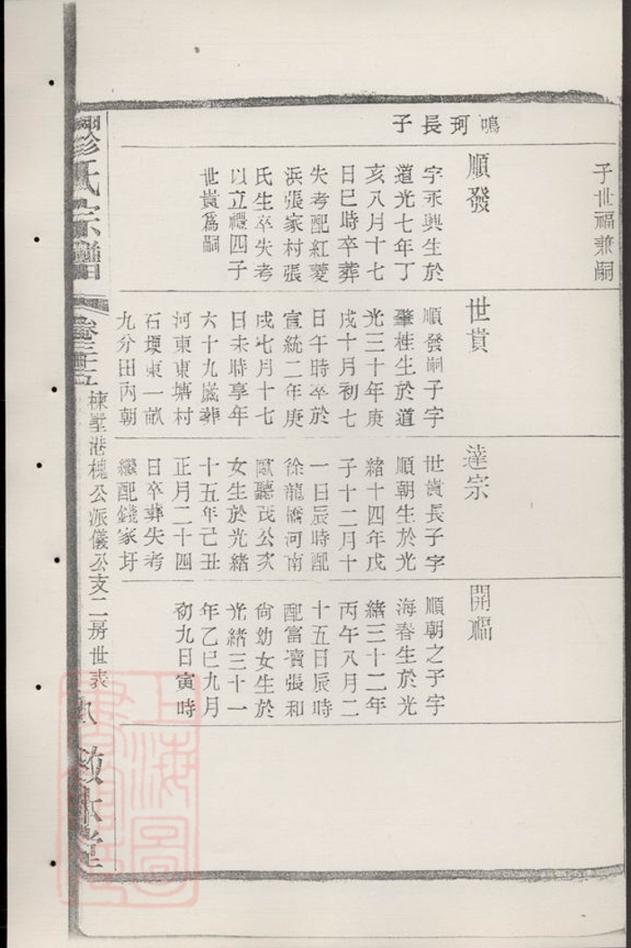 子世福兼嗣
鳴珂長子
順發
字永興生於
道光七年丁
亥八月十七
日巳時卒葬
失考配紅菱
浜張家村張
氏生卒失考
以立禮四子
世貴爲嗣
世貴
順發嗣子字
肇桂生於道
光三十年庚
戌十月初七
日午時卒於
宣統二年庚
戌七月十七
日未時享年
六十九歲葬
河東東塘村
石埂東一畝
九分田丙朝
達宗
世貴長子字
順朝生於光
緒十四年戊
子十二月十
一日辰時配
徐龍橋河南
歐聽茂公次
女生於光緒
十五年己丑
正月二十四
日卒葬失考
繼配錢家圩
開福
順朝之子字
海春生於光
緒三十二年
丙午八月二
十五日辰時
配富瀆張和
尙幼女生於
光緒三十一
年乙巳九月
初九日寅時
氏宗譜
卷三十五
棟墅港槐公派儀公支二房世表
敦本堂
上海圖書館藏